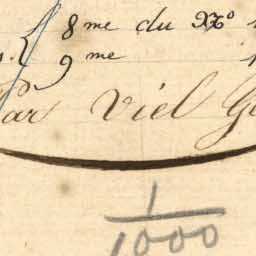 8me du Xo
9me
Par Viel
1/1000